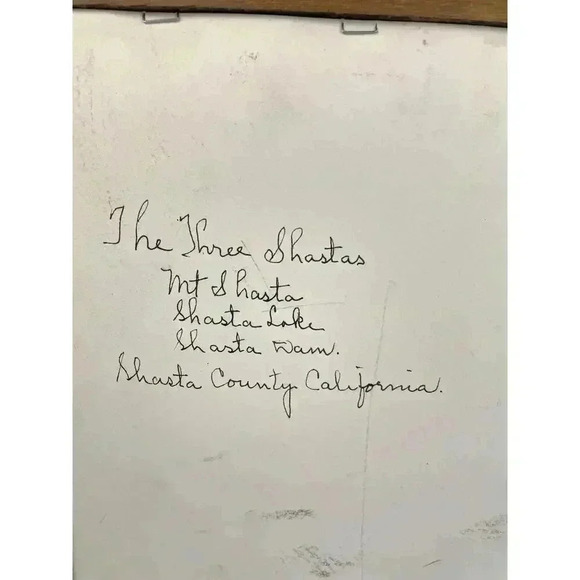 The Three Shastas
Mt Shasta
Shasta Lake
Shasta Dam.
Shasta County California.